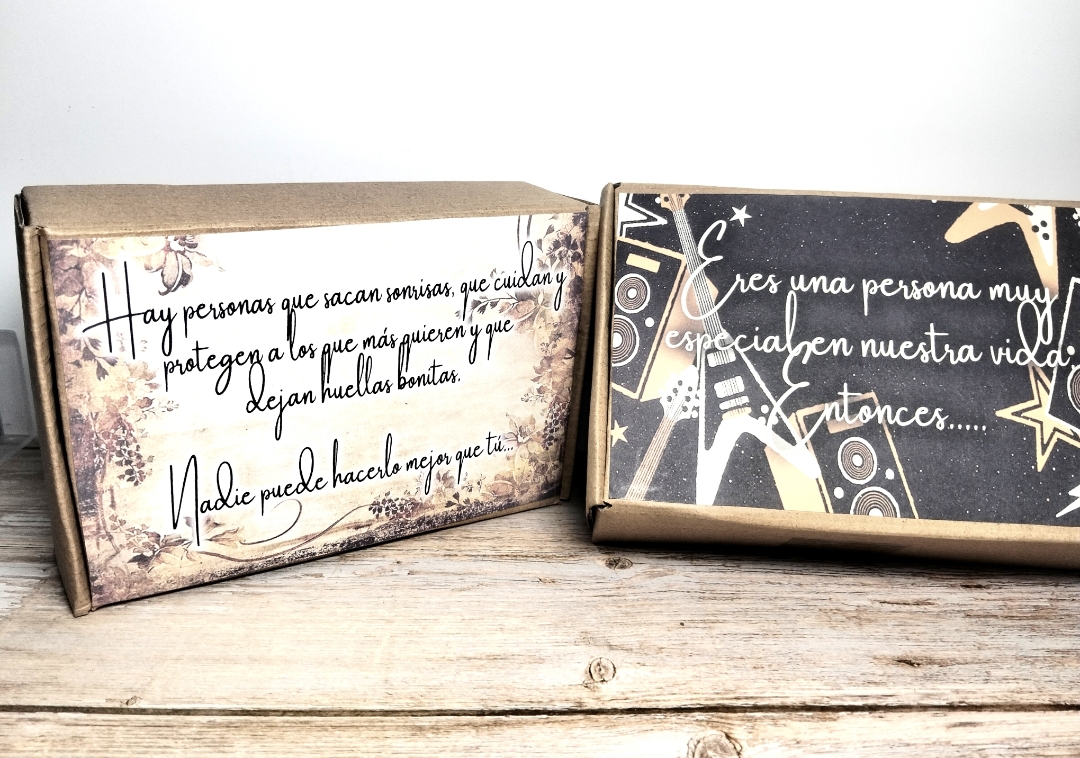 Hay personas que sacan sonrisas, que cuidan y
protegen a los que más quieren y que
dejan huellas bonitas.
Nadie puede hacerlo mejor que tú...
Eres una persona muy
especial en nuestra vida.
Entonces.....